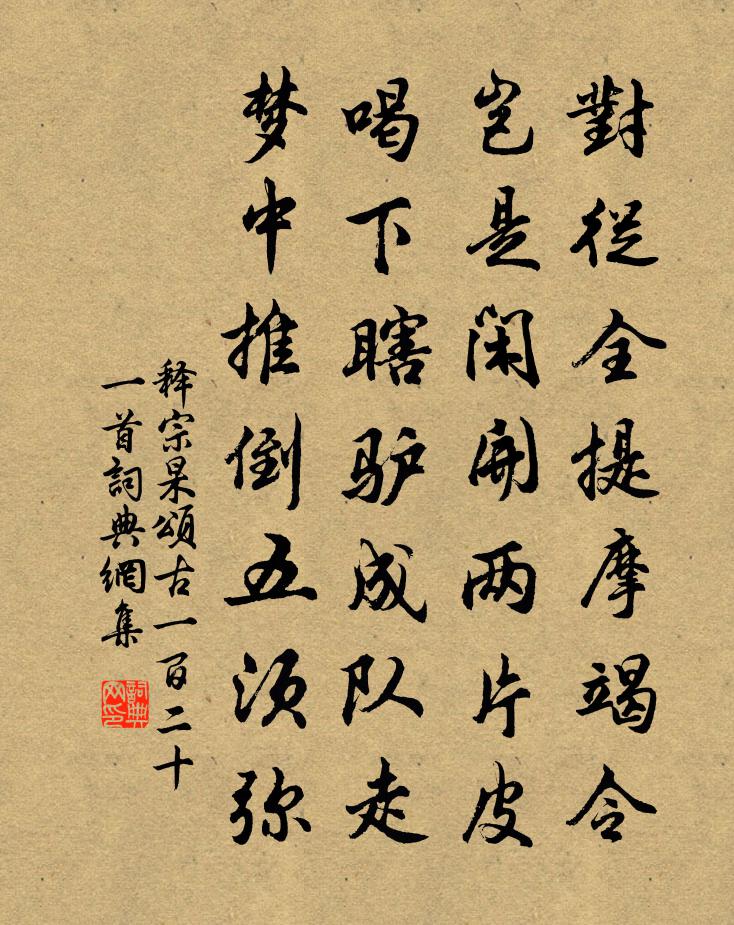 對從全提摩竭令
岂是閑開两片皮
喝下瞎驴成队走
梦中推倒五须弥
释宗杲頌古一百二十
一首詞典網集
詞典网印